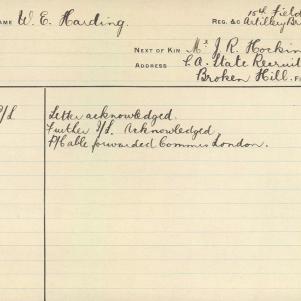 NAME W. E. Harding.
REG. &c 15th Field Artillery Br
NEXT OF KIN Mr J. R. Hockin
ADDRESS S.A. State Recruit
Broken Hill.
/L Letter acknowledged.
Further I/L. Acknowledged.
Cable forwarded Commis London.